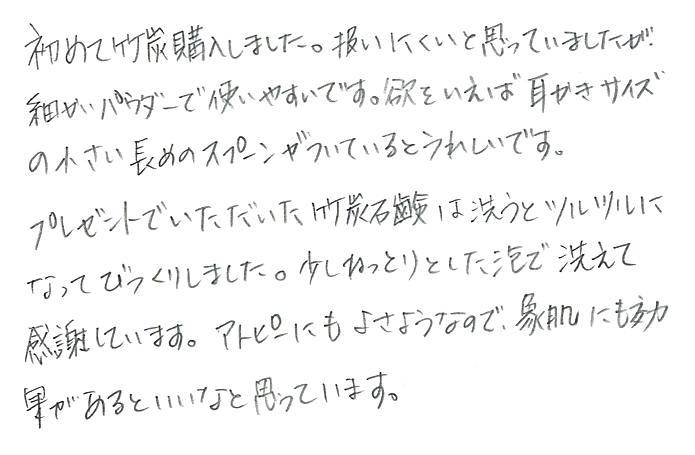 初めて竹炭購入しました。扱いにくいと思っていましたが、
細かいパウダーで使いやすいです。欲をいえば耳かきサイズ
の小さい長めのスプーンがついているとうれしいです。
プレゼントでいただいた竹炭石鹸は洗うとツルツルに
なってびっくりしました。少しねっとりとした泡で洗えて
感謝しています。アトピーにもよさようなので、象肌にも効
果があるといいなと思っています。